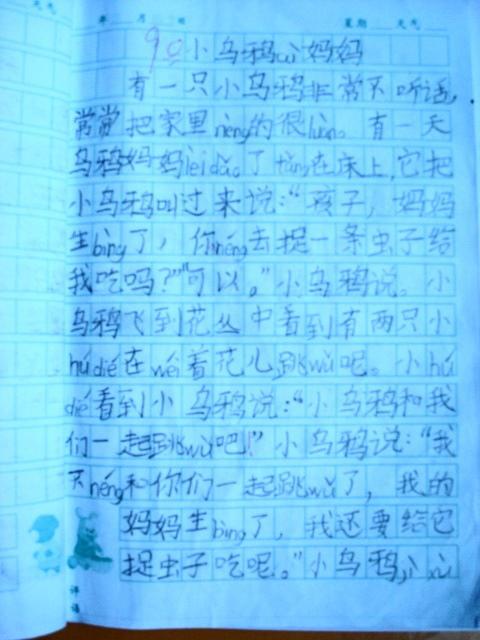 天气 年 月 日 星期 天气
90
小乌鸦wèi妈妈
有一只小乌鸦非常不听话,
常常把家里nèng的很luàn。有一天
乌鸦妈妈lèi dǎo了tǎng在床上,它把
小乌鸦叫过来说:“孩子,妈妈
生bìng了,你néng去捉一条虫子给
我吃吗?”“可以。”小乌鸦说。小
乌鸦飞到花丛中看到有两只小
hú dié在wéi着花儿跳wǔ呢。小hú
dié看到小乌鸦说:“小乌鸦和我
们一起跳wǔ吧!”小乌鸦说:“我
不néng和你们一起跳wǔ了,我的
妈妈生bìng了,我还要给它
捉虫子吃呢。”小乌鸦
评语